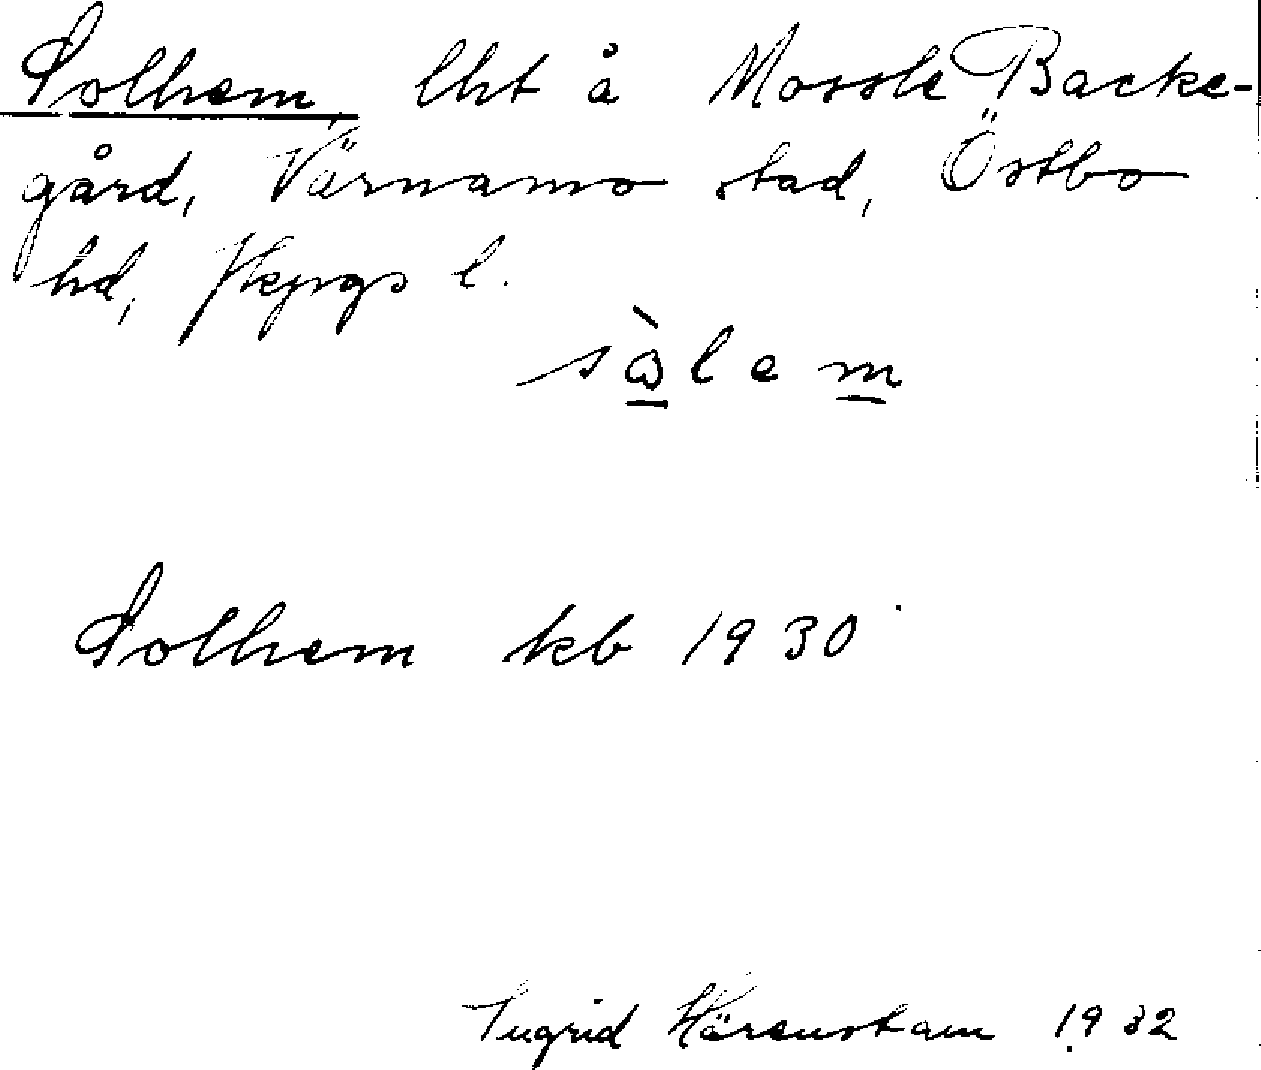 Solhem, lht å Mossle Backe-
gård, Värnamo stad, Östbo
hd, Jkpgs l.
sὼlem
Solhem kb 1930
Ingrid Härenstam 1932